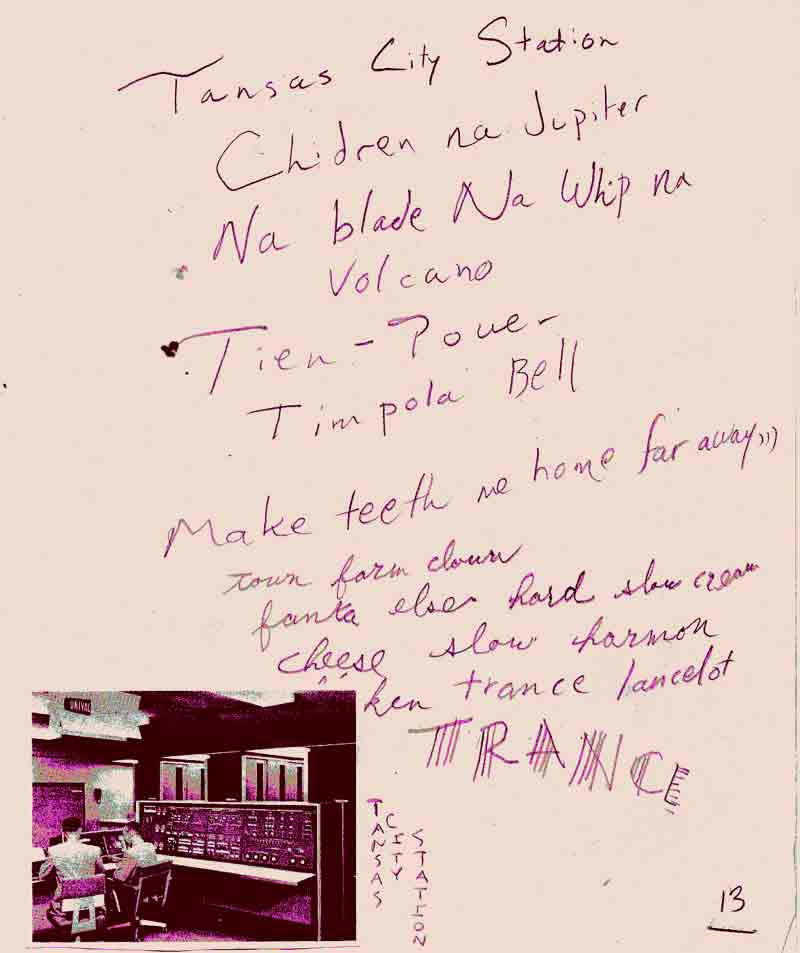 Tansas City Station
Chidren na Jupiter
Na blade Na Whip na
Volcano
Tien - Powe -
Timpola Bell
Make teeth me home far away,,,)
town farm clown
fanta else hard slow cream
cheese slow harmon
ken trance lancelot
TRANCE
UNIVAC
TANSAS
CITY
STATION
13